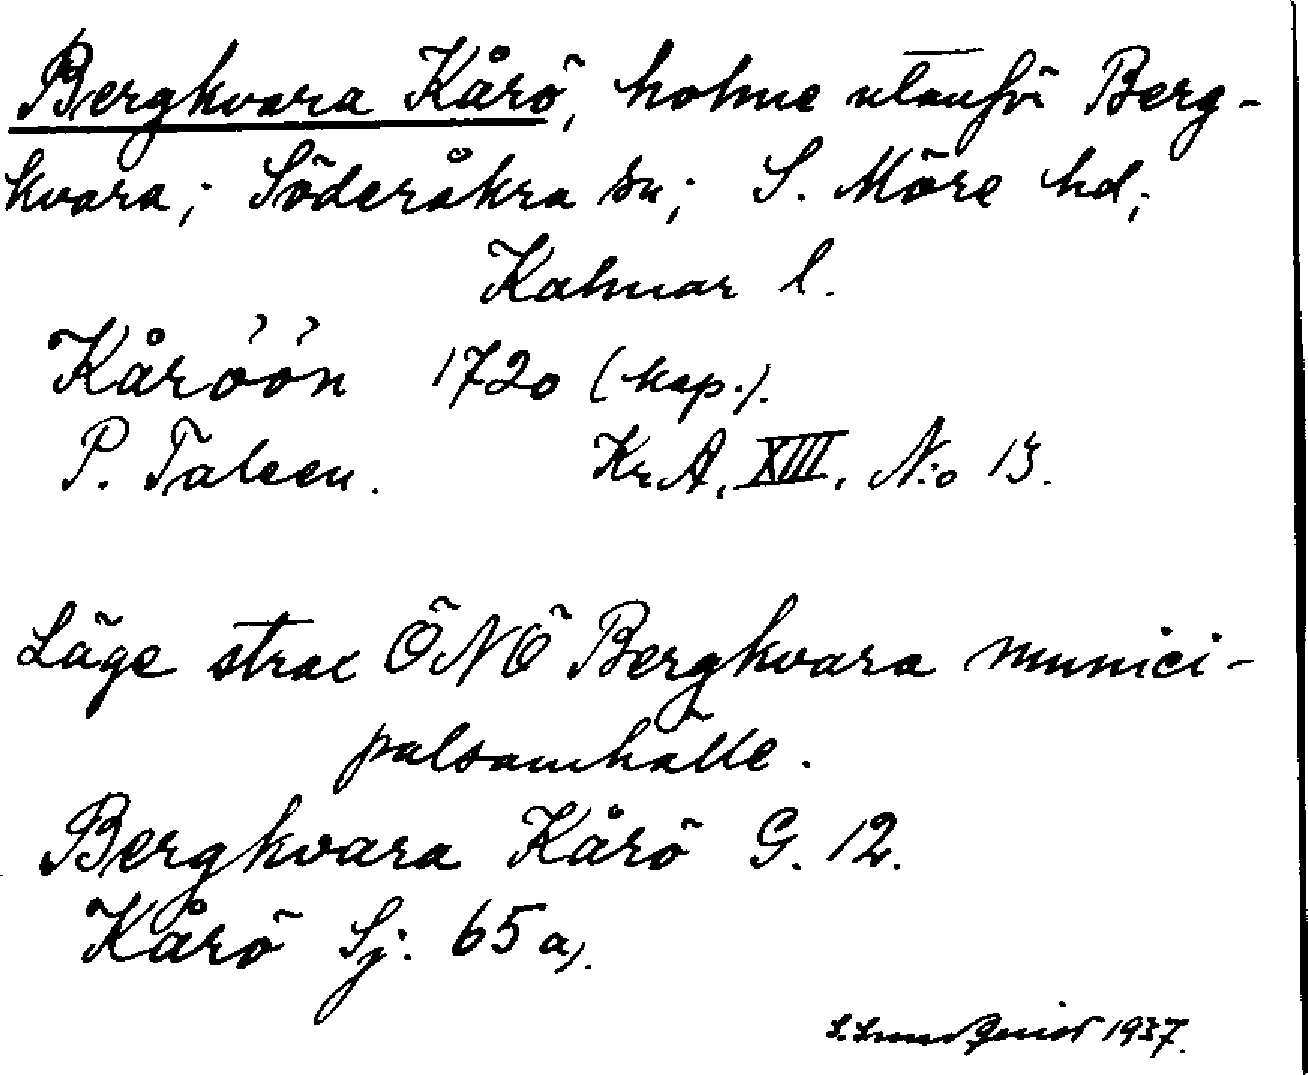 Bergkvara Kårö, holme utanför Berg-
kvara; Söderåkra sn; S. Möre hd;
Kalmar l.
Kåröön 1720 (kap.).
P. Taleen. Kr. A. XIII. N:o 13.
Läge strax ÖNÖ Bergkvara munici-
palsamhälle.
Bergkvara Kårö G. 12.
Kårö Sj: 65 a).
1937.